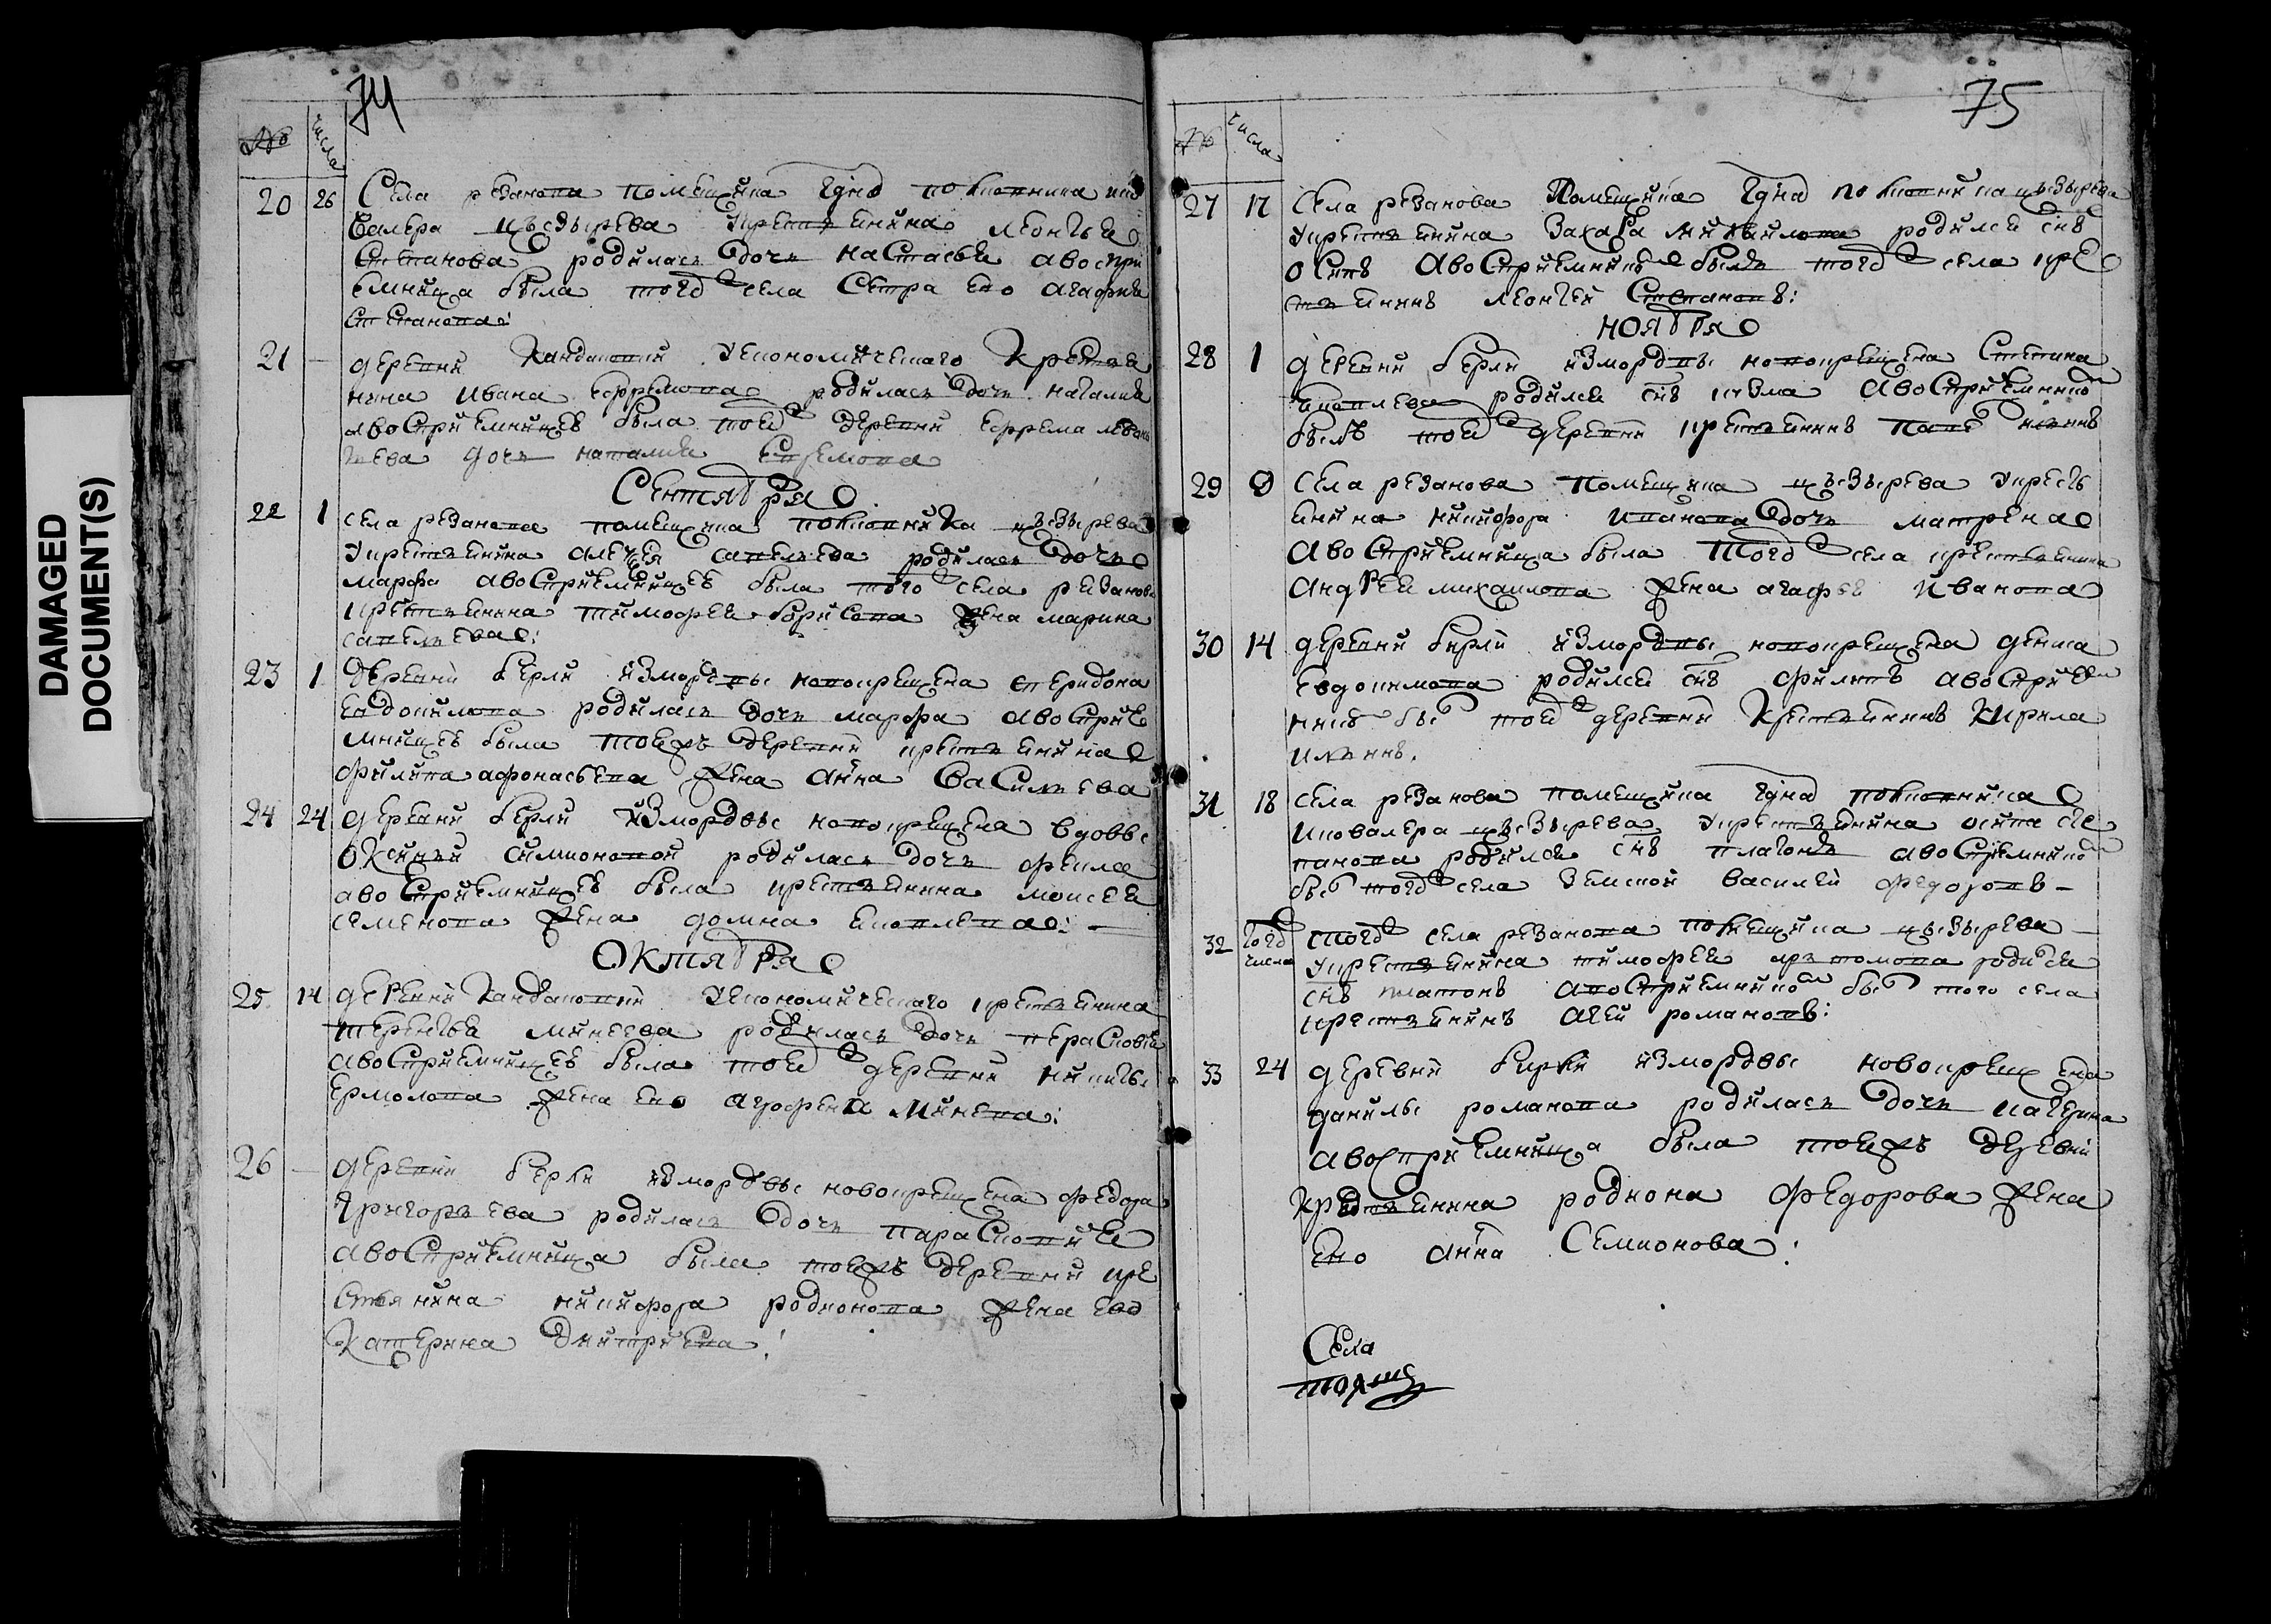 DAMAGED
DOCUMENT(S)
74
№
числа
20 26 Села резанова помещика гдна полковника и ка
валера цызырева у крестьянина леонтья
Степанова родилась дочь настасья а воспри
емница была тогож села сестра ево агафия
Степанова:
21 — деревни Кандаковки у економическаго крестья
нина ивана ефремова родилась дочь наталия
а восприемницею была тоеж деревни ефрема
дочь наталия ефремова
Сентября
22 1 села резанова помещика полковника цызырева
у крестьянина алексея савельева родилась дочь
марфа а восприемницею была того села резанова
крестьянина тимофея борисова жена марина
савельева:
23 1 деревни берли из мордвы новокрещена спиридона
евдокимова родилась дочь марфа а восприе
мницею была тоежъ деревни крестьянина
филипа афонасьева жена анна Васильева
24 24 деревни берли из мордвы новокрещена вдовы
оксиньи симионовой родилась дочь фекла
а восприемницею была крестьянина моисея
семенова жена домна яковлева: —
Октября
25 14 деревни Кандаковки у економическаго крестьянина
терентья минеева родилась дочь перасковия
а восприемницею была тоеж деревни никиты
ермолова жена ево аграфена минева:
26 — деревни берли из мордвы новокрещена федора
григорьева родилась дочь парасковия
а восприемница была тоежъ деревни кре
стьянина никифора родионова жена ево
катерина дмитриева:
75
№
числа
27 17 Села резанова помещика гдна полковника цызырева
у крестьянина захара михайлова родился снъ
осипъ а восприемникъ былъ тогож села кре
стьянинъ леонтей Степановъ:
ноября
28 1 деревни берли из мордвы новокрещена Степана
яковлева родился снъ козма а восприемником
былъ тоеж деревни крестьянинъ
29 9 села резанова помещика цызырева у кресть
янина никифора иванова дочь матрена
а восприемница была тогож села крестьянина
андрея михаилова жена агафья иванова
30 14 деревни бирли из мордвы новокрещена дениса
евдокимова родился снъ филипъ а восприем
никъ был тоеж деревни крестьянинъ кирила
ильинъ.
31 18 села резанова помещика гдна полковника
и ковалера цызырева у крестьянина осипа сте
панова родился снъ платонъ а восприемником
был тогож села земской василей федоровъ —
32 тогож числа тогож села резанова помещика цызырева —
у крестьянина тимофея артомова родился
снъ платонъ а восприемником был того села
крестьянинъ агей романовъ:
33 24 деревни бирли из мордвы новокрещена
данилы романова родилась дочь катерина
а восприемница была тоежъ деревни
крестьянина родиона федорова жена
ево анна Семионова:
Села